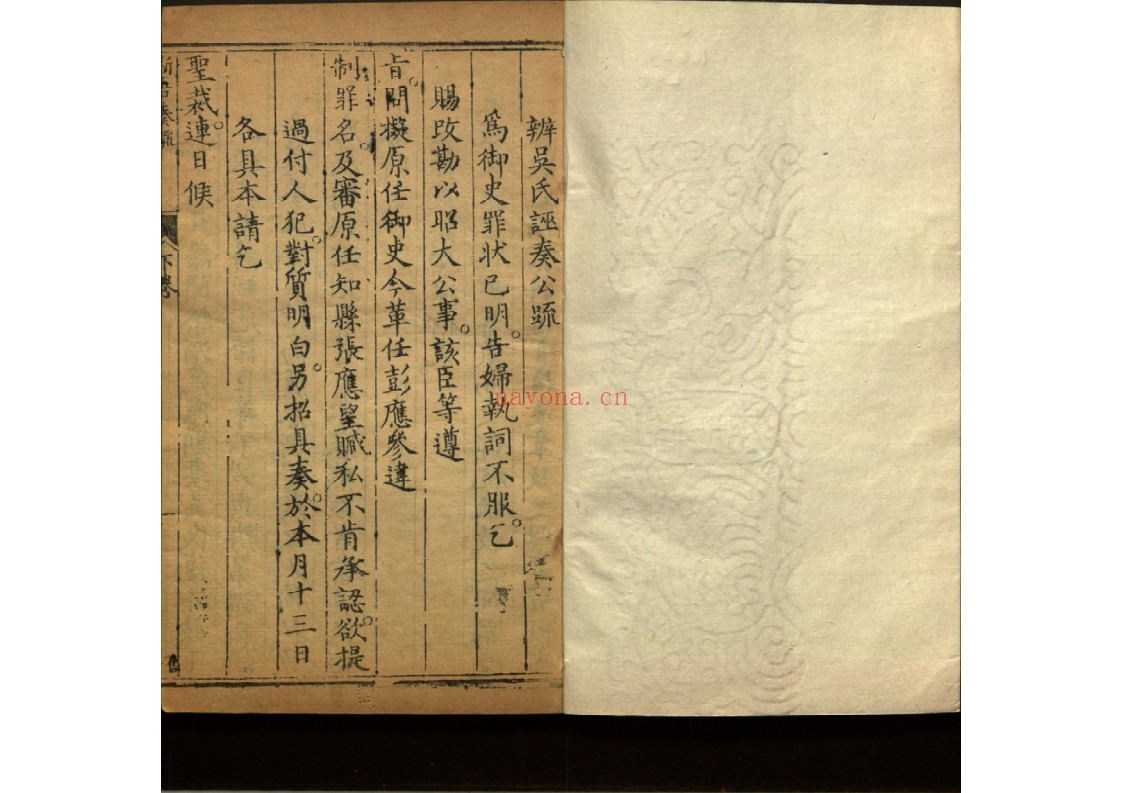 辨吳氏誣奏公疏
爲御史罪狀已明。告婦執詞不服。乞
賜改勘以昭大公事。該臣等遵
旨。問擬原任御史今革任彭應參違
制罪名。及審原任知縣張應望贓私不肯承認。欲提
過付人犯。對質明白。另招具奏。於本月十三日
各具本請乞
聖裁。連日候
奏疏
下卷
uayona.cn